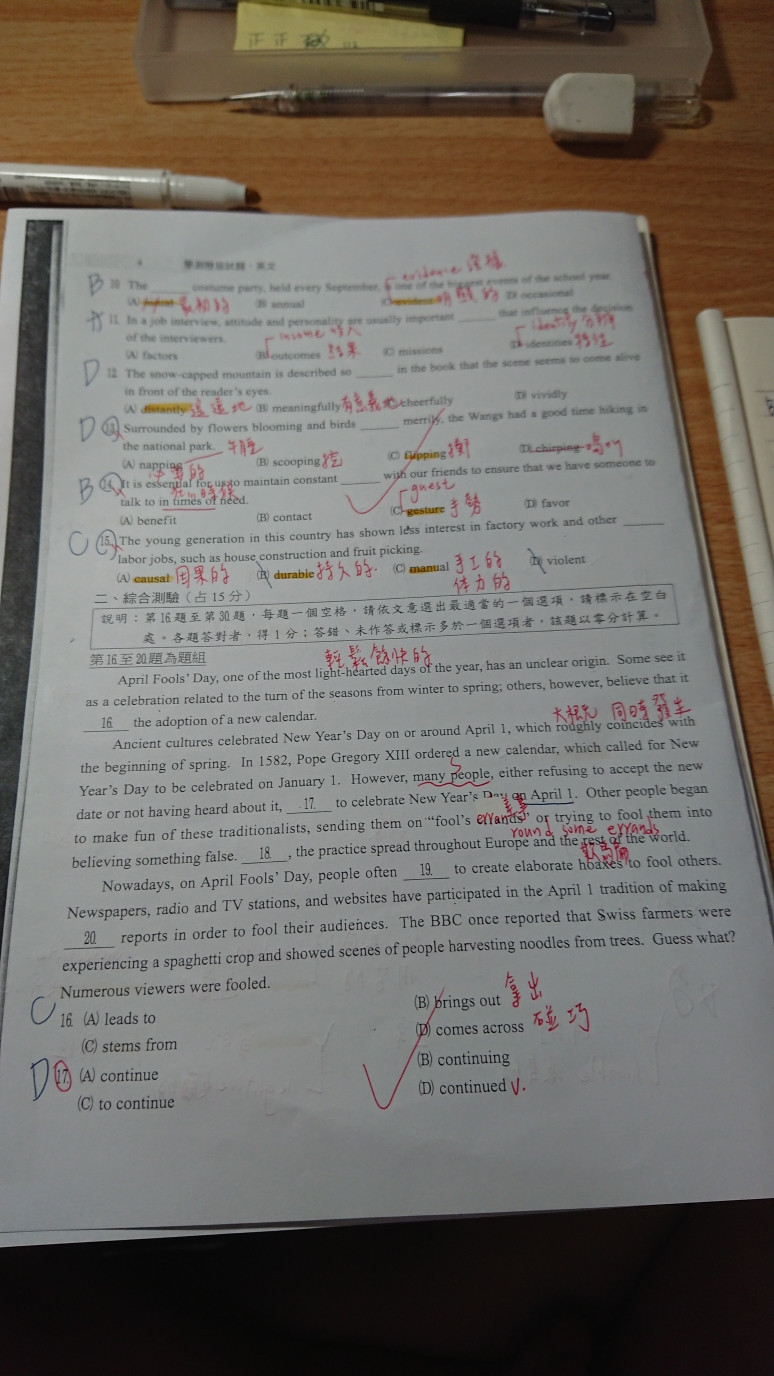 正 正
學測模擬試題．英文
evidence 證據
B 10. The ______ costume party, held every September, is one of the biggest events of the school year.
(B) annual (D) occasional
A 11. In a job interview, attitude and personality are usually important ______ that influence the decision
of the interviewers. income 收入 identify
(A) factors (B) outcomes 結果 (C) missions (D) identities 特徵
D 12. The snow-capped mountain is described so ______ in the book that the scene seems to come alive
in front of the reader's eyes.
(A) distantly 遙遠地 (B) meaningfully 有意義地 (C) cheerfully (D) vividly
D 13. Surrounded by flowers blooming and birds ______ merrily, the Wangs had a good time hiking in
the national park.
(A) napping (B) scooping 挖 (C) flipping (D) chirping
B 14. It is essential for us to maintain constant ______ with our friends to ensure that we have someone to
talk to in times of need. guest
(A) benefit (B) contact (C) gesture 手勢 (D) favor
C 15. The young generation in this country has shown less interest in factory work and other ______
labor jobs, such as house construction and fruit picking.
(A) causal 因果的 (B) durable 持久的 (C) manual 手工的 (D) violent
體力的
二、綜合測驗（占15分）
說明：第16題至第30題，每題一個空格，請依文意選出最適當的一個選項，請標示在空白
處。各題答對者，得1分；答錯、未作答或標示多於一個選項者，該題以零分計算。
第16至20題為題組 輕鬆愉快的
April Fools' Day, one of the most light-hearted days of the year, has an unclear origin. Some see it
as a celebration related to the turn of the seasons from winter to spring; others, however, believe that it
16 the adoption of a new calendar. 大概 同時發生
Ancient cultures celebrated New Year's Day on or around April 1, which roughly coincides with
the beginning of spring. In 1582, Pope Gregory XIII ordered a new calendar, which called for New
Year's Day to be celebrated on January 1. However, many people, either refusing to accept the new
date or not having heard about it, 17 to celebrate New Year's Day on April 1. Other people began
to make fun of these traditionalists, sending them on "fool's errands" or trying to fool them into
round some errands
believing something false. 18 , the practice spread throughout Europe and the rest of the world.
Nowadays, on April Fools' Day, people often 19 to create elaborate hoaxes to fool others.
Newspapers, radio and TV stations, and websites have participated in the April 1 tradition of making
20 reports in order to fool their audiences. The BBC once reported that Swiss farmers were
experiencing a spaghetti crop and showed scenes of people harvesting noodles from trees. Guess what?
Numerous viewers were fooled.
C 16. (A) leads to (B) brings out 拿出
(C) stems from (D) comes across 碰巧
D 17. (A) continue (B) continuing
(C) to continue (D) continued v.